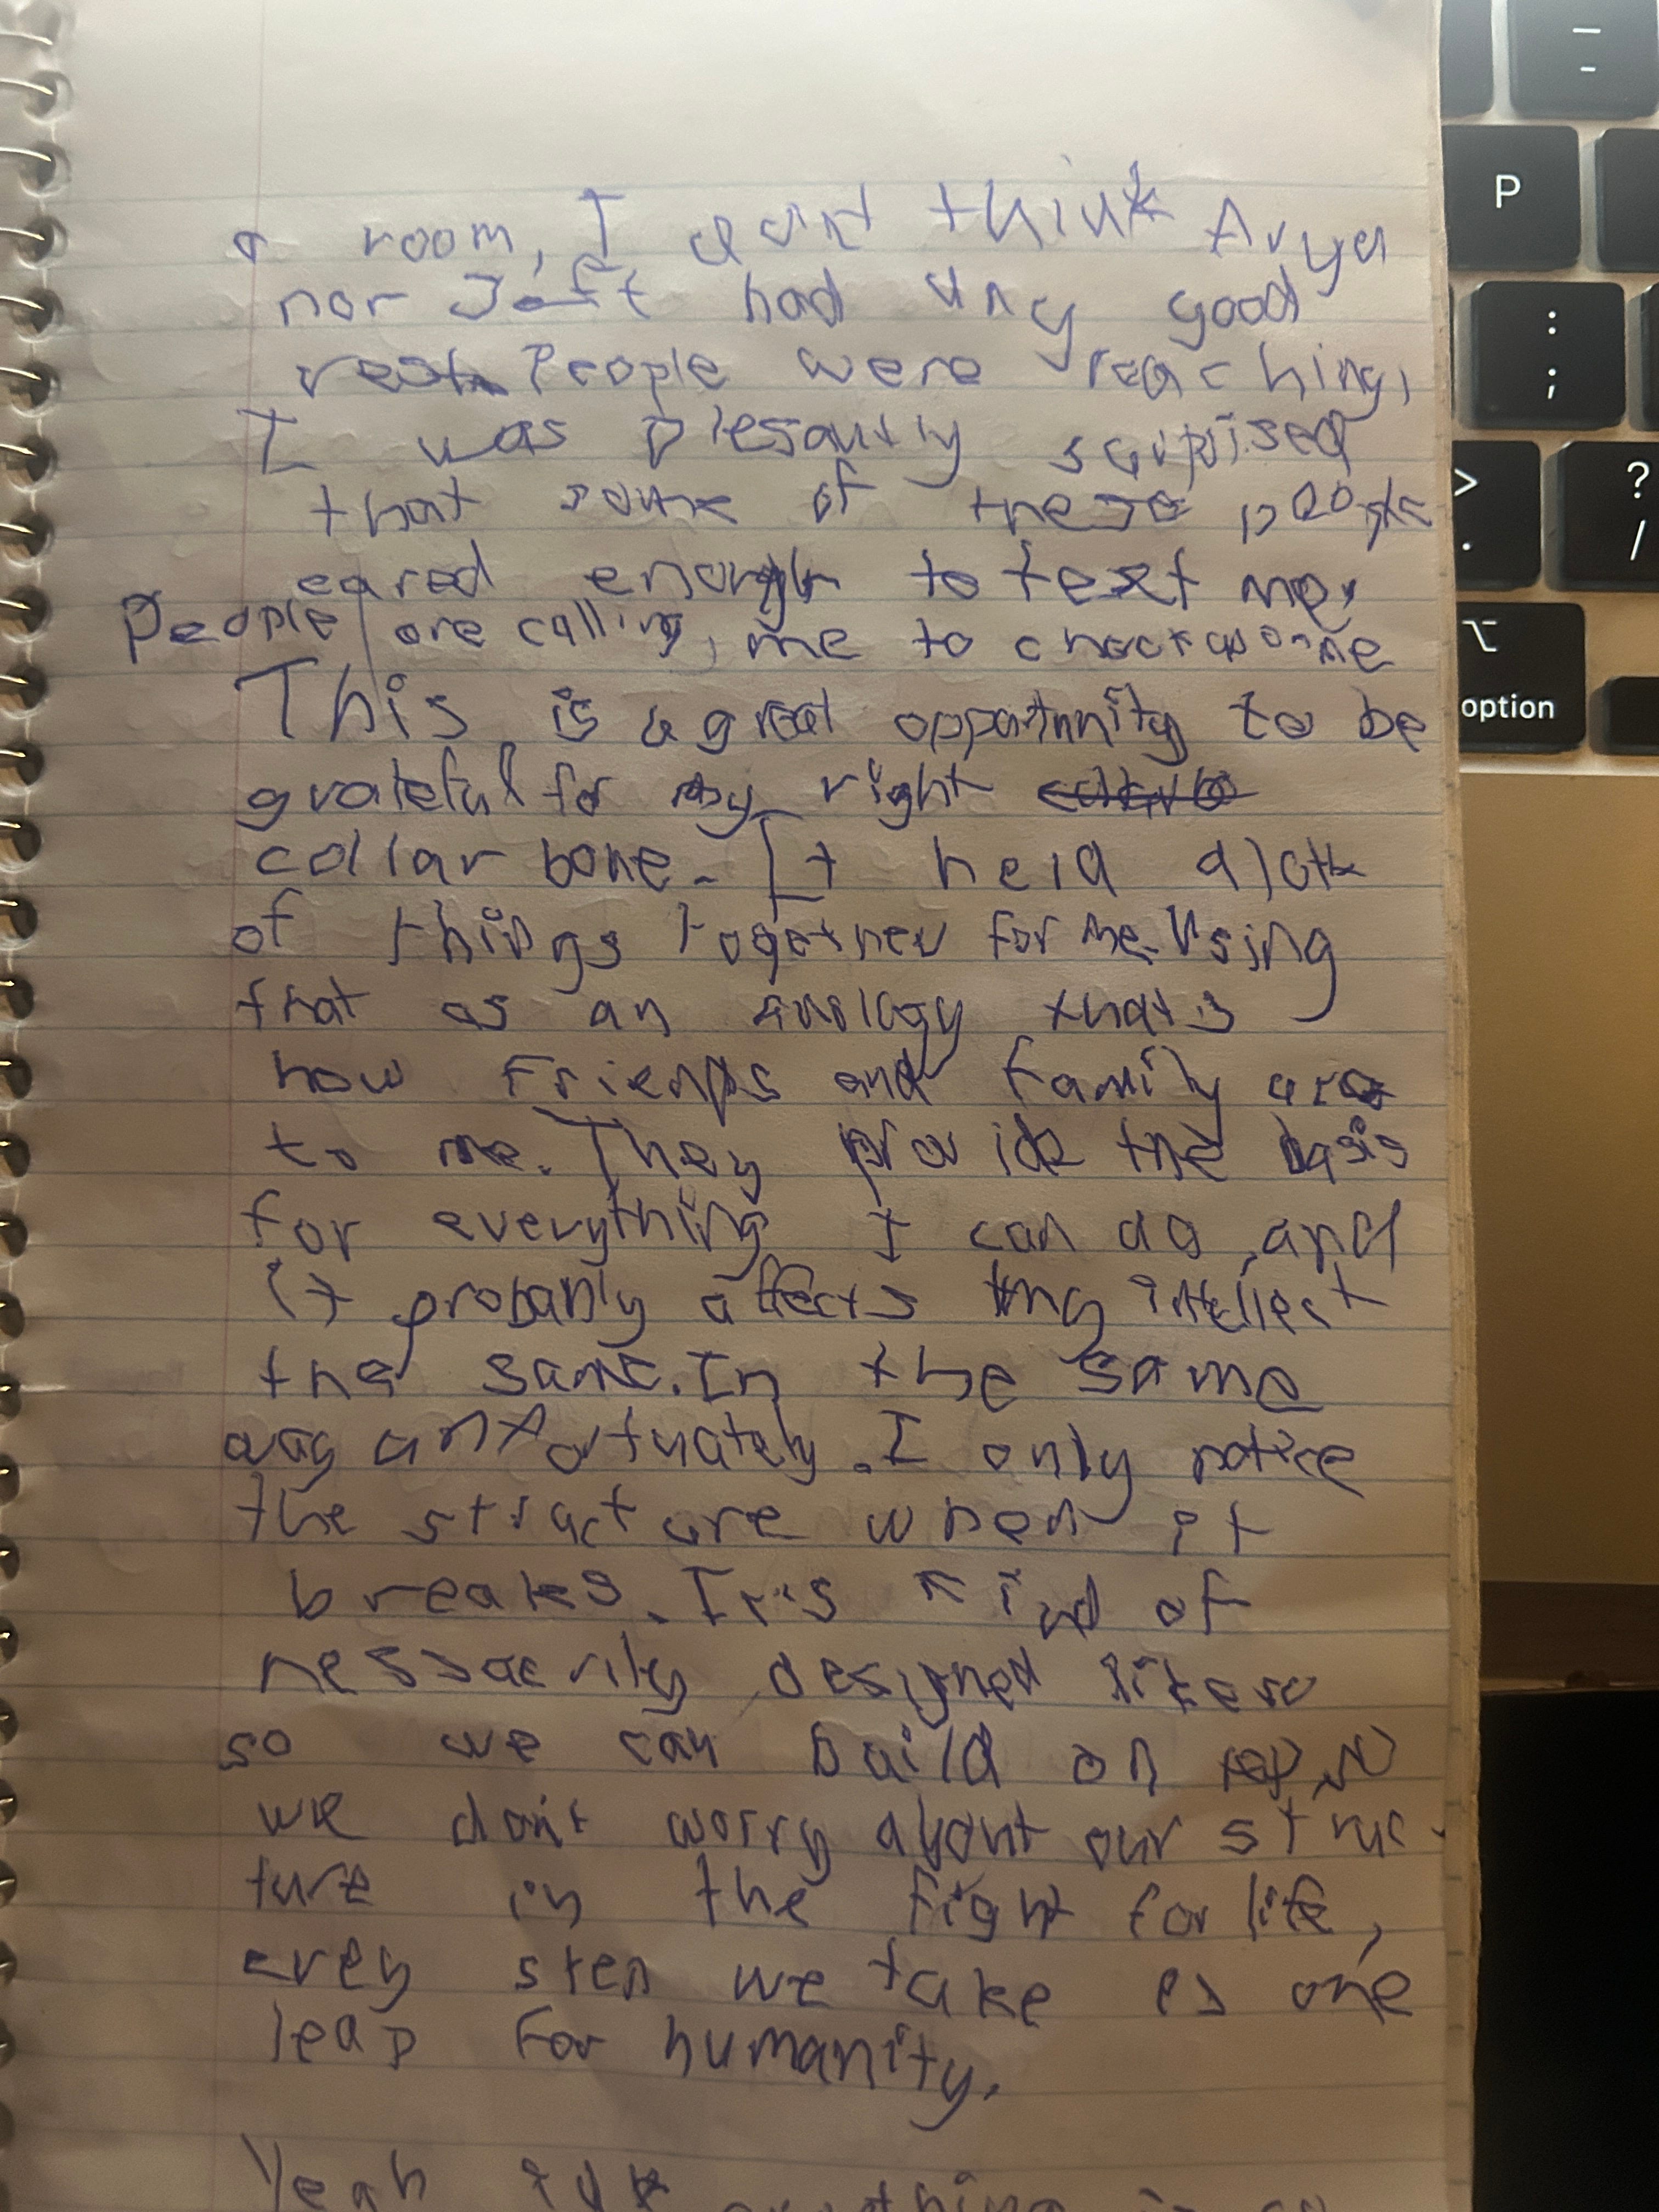 a room, I don't think Arya
nor Jeff had any good
rest. People were reaching,
I was plesantly surprised
that some of these people
cared enough to text me,
People are calling, me to check up on me
This is a great opportunity to be
grateful for my right
collar bone. It held alott
of things together for me. Using
that as an anology thats
how Friends and family are
to me. They provide the basis
for everything I can do, and
it probably affects my intellect
the same. In the same
way unfortuately. I only notice
the structure when it
breaks. It's kind of
nessacrily designed likeso
so we can build on
we don't worry about our struc-
ture in the fight for life,
every step we take is one
leap for humanity.
Yeah idk
P
option
-
:
;
>
.
?
/